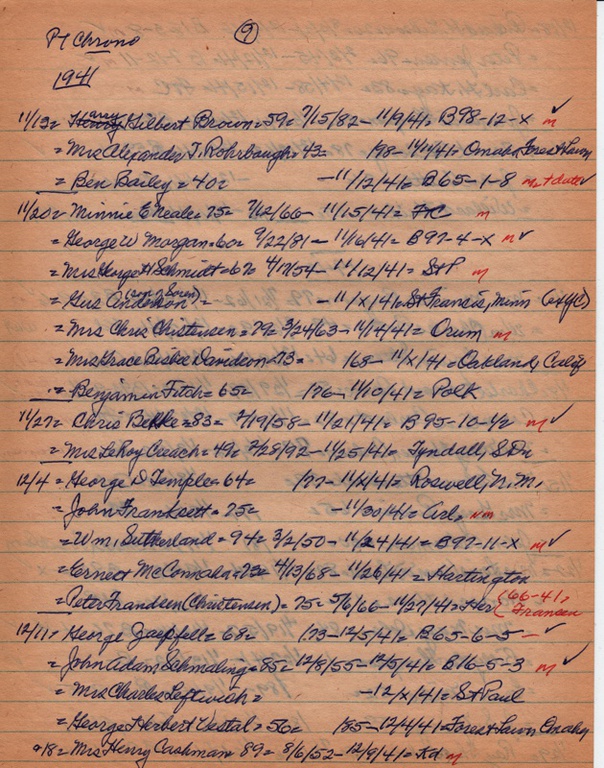 Pt Chrono ⑨
1941
11/13= Harry Gilbert Brown=59= 7/15/82-11/9/41= B98-12-X m ✓
= Mrs Alexander T. Rohrbaugh= 43= /98-11/11/41= Omaha, Forest Lawn
= Ben Bailey = 40= -11/12/41= B65-1-8 m + date ✓
11/20= Minnie E Neale= 75= 7/12/66-11/15/41= FC m
= George W Morgan=60= 9/22/81-11/16/41= B97-4-X m ✓
= Mrs George H Schmidt=67= 4/17/54-11/12/41= StP m
= Gus Anderson (son of Soren) = -11/X/41= St Francis, Minn
= Mrs Chris Christensen= 79= 3/24/63-11/14/41= Orum m
= Mrs Grace Bisbee Davidson=73= /68-11/X/41= Oakland, Calif
= Benjamin Fitch= 65= /76-11/10/41= Polk
11/27= Chris =83= 7/19/58-11/21/41= B95-10-1/2 m ✓
= Mrs LeRoy Creach=49= 7/28/92-11/25/41= Tyndall, SD=
12/4= George D Temple=64= /77-11/X/41= Roswell, N.M.
= John =75= -11/30/41= Arl, nm
= Wm. Sutherland=94= 3/2/50-11/24/41= B97-11-X m ✓
= Ernest =73= 4/13/68-11/26/41= Hartington
= Peter Frandsen (Christensen)= 75= 5/6/66-11/27/41= Her {66-41, Fransen
12/11= George Zaepfell= 68= /73-12/5/41= B65-6-5 - ✓
= John Adam Schmaling=85= 12/8/55-12/5/41= B16-5-3 m ✓
= Mrs Charles Leftwich= -12/X/41= St Paul
= George Herbert Vestal= 56= /85-12/4/41= Forest Lawn, Omaha
18= Mrs Henry Cashman= 89= 8/6/52-12/9/41= Kd m